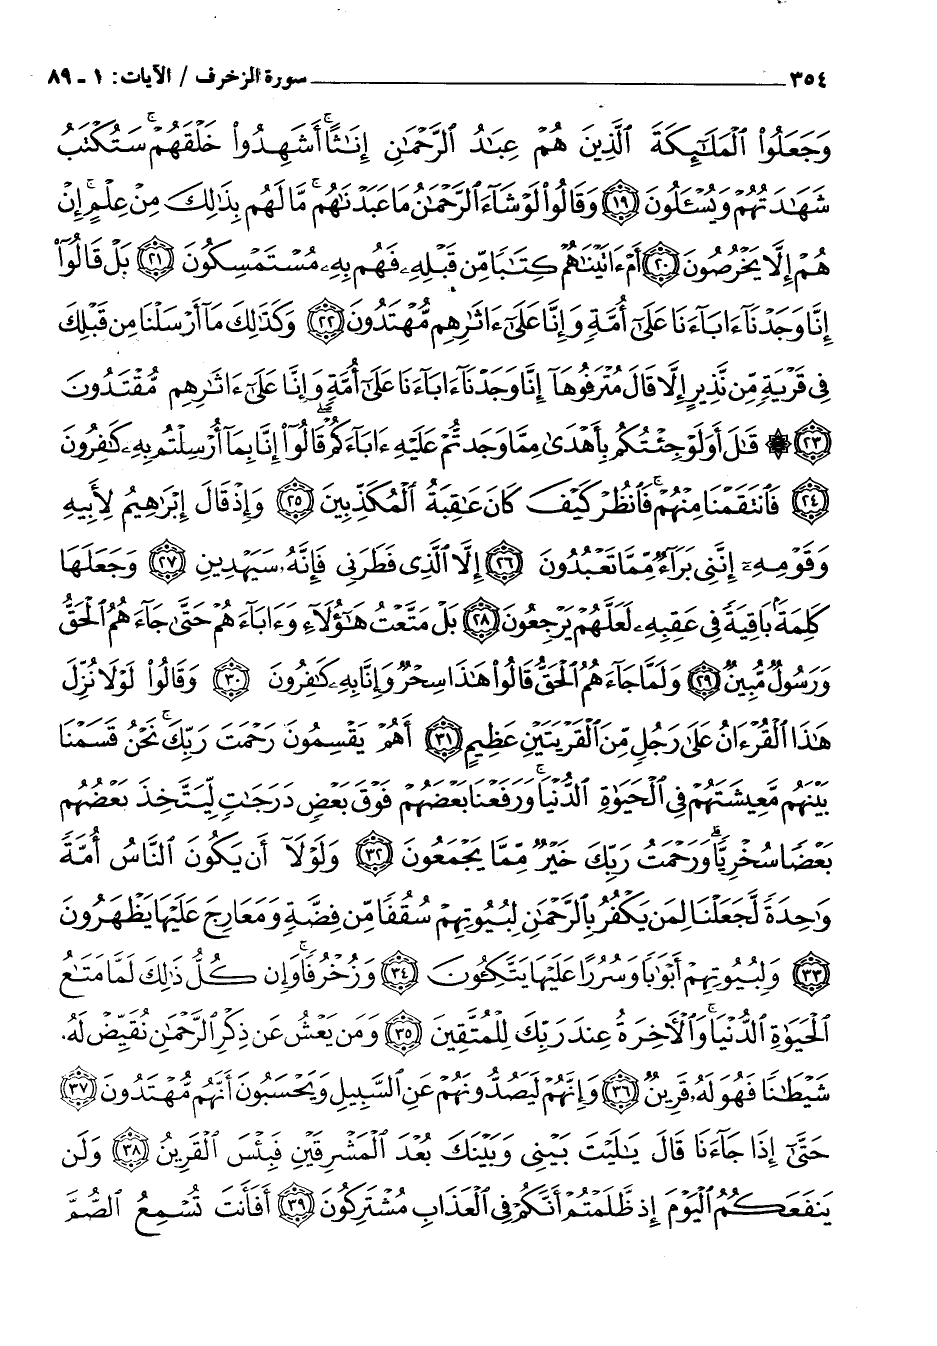 ٣٥٤ سورة الزخرف / الآيات: ١ - ٨٩
وَجَعَلُوا۟ ٱلْمَلَـٰٓئِكَةَ ٱلَّذِينَ هُمْ عِبَـٰدُ ٱلرَّحْمَـٰنِ إِنَـٰثًا ۚ أَشَهِدُوا۟ خَلْقَهُمْ ۚ سَتُكْتَبُ
شَهَـٰدَتُهُمْ وَيُسْـَٔلُونَ ﴿١٩﴾ وَقَالُوا۟ لَوْ شَآءَ ٱلرَّحْمَـٰنُ مَا عَبَدْنَـٰهُم ۗ مَّا لَهُم بِذَٰلِكَ مِنْ عِلْمٍ ۖ إِنْ
هُمْ إِلَّا يَخْرُصُونَ ﴿٢٠﴾ أَمْ ءَاتَيْنَـٰهُمْ كِتَـٰبًا مِّن قَبْلِهِۦ فَهُم بِهِۦ مُسْتَمْسِكُونَ ﴿٢١﴾ بَلْ قَالُوٓا۟
إِنَّا وَجَدْنَآ ءَابَآءَنَا عَلَىٰٓ أُمَّةٍ وَإِنَّا عَلَىٰٓ ءَاثَـٰرِهِم مُّهْتَدُونَ ﴿٢٢﴾ وَكَذَٰلِكَ مَآ أَرْسَلْنَا مِن قَبْلِكَ
فِى قَرْيَةٍ مِّن نَّذِيرٍ إِلَّا قَالَ مُتْرَفُوهَآ إِنَّا وَجَدْنَآ ءَابَآءَنَا عَلَىٰٓ أُمَّةٍ وَإِنَّا عَلَىٰٓ ءَاثَـٰرِهِم مُّقْتَدُونَ
﴿٢٣﴾ ۞ قَـٰلَ أَوَلَوْ جِئْتُكُم بِأَهْدَىٰ مِمَّا وَجَدتُّمْ عَلَيْهِ ءَابَآءَكُمْ ۖ قَالُوٓا۟ إِنَّا بِمَآ أُرْسِلْتُم بِهِۦ كَـٰفِرُونَ
﴿٢٤﴾ فَٱنتَقَمْنَا مِنْهُمْ ۖ فَٱنظُرْ كَيْفَ كَانَ عَـٰقِبَةُ ٱلْمُكَذِّبِينَ ﴿٢٥﴾ وَإِذْ قَالَ إِبْرَٰهِيمُ لِأَبِيهِ
وَقَوْمِهِۦٓ إِنَّنِى بَرَآءٌ مِّمَّا تَعْبُدُونَ ﴿٢٦﴾ إِلَّا ٱلَّذِى فَطَرَنِى فَإِنَّهُۥ سَيَهْدِينِ ﴿٢٧﴾ وَجَعَلَهَا
كَلِمَةًۢ بَاقِيَةً فِى عَقِبِهِۦ لَعَلَّهُمْ يَرْجِعُونَ ﴿٢٨﴾ بَلْ مَتَّعْتُ هَـٰٓؤُلَآءِ وَءَابَآءَهُمْ حَتَّىٰ جَآءَهُمُ ٱلْحَقُّ
وَرَسُولٌ مُّبِينٌ ﴿٢٩﴾ وَلَمَّا جَآءَهُمُ ٱلْحَقُّ قَالُوا۟ هَـٰذَا سِحْرٌ وَإِنَّا بِهِۦ كَـٰفِرُونَ ﴿٣٠﴾ وَقَالُوا۟ لَوْلَا نُزِّلَ
هَـٰذَا ٱلْقُرْءَانُ عَلَىٰ رَجُلٍ مِّنَ ٱلْقَرْيَتَيْنِ عَظِيمٍ ﴿٣١﴾ أَهُمْ يَقْسِمُونَ رَحْمَتَ رَبِّكَ ۚ نَحْنُ قَسَمْنَا
بَيْنَهُم مَّعِيشَتَهُمْ فِى ٱلْحَيَوٰةِ ٱلدُّنْيَا ۚ وَرَفَعْنَا بَعْضَهُمْ فَوْقَ بَعْضٍ دَرَجَـٰتٍ لِّيَتَّخِذَ بَعْضُهُم
بَعْضًا سُخْرِيًّا ۗ وَرَحْمَتُ رَبِّكَ خَيْرٌ مِّمَّا يَجْمَعُونَ ﴿٣٢﴾ وَلَوْلَآ أَن يَكُونَ ٱلنَّاسُ أُمَّةً
وَٰحِدَةً لَّجَعَلْنَا لِمَن يَكْفُرُ بِٱلرَّحْمَـٰنِ لِبُيُوتِهِمْ سُقُفًا مِّن فِضَّةٍ وَمَعَارِجَ عَلَيْهَا يَظْهَرُونَ
﴿٣٣﴾ وَلِبُيُوتِهِمْ أَبْوَٰبًا وَسُرُرًا عَلَيْهَا يَتَّكِـُٔونَ ﴿٣٤﴾ وَزُخْرُفًا ۚ وَإِن كُلُّ ذَٰلِكَ لَمَّا مَتَـٰعُ
ٱلْحَيَوٰةِ ٱلدُّنْيَا ۚ وَٱلْـَٔاخِرَةُ عِندَ رَبِّكَ لِلْمُتَّقِينَ ﴿٣٥﴾ وَمَن يَعْشُ عَن ذِكْرِ ٱلرَّحْمَـٰنِ نُقَيِّضْ لَهُۥ
شَيْطَـٰنًا فَهُوَ لَهُۥ قَرِينٌ ﴿٣٦﴾ وَإِنَّهُمْ لَيَصُدُّونَهُمْ عَنِ ٱلسَّبِيلِ وَيَحْسَبُونَ أَنَّهُم مُّهْتَدُونَ ﴿٣٧﴾
حَتَّىٰٓ إِذَا جَآءَنَا قَالَ يَـٰلَيْتَ بَيْنِى وَبَيْنَكَ بُعْدَ ٱلْمَشْرِقَيْنِ فَبِئْسَ ٱلْقَرِينُ ﴿٣٨﴾ وَلَن
يَنفَعَكُمُ ٱلْيَوْمَ إِذ ظَّلَمْتُمْ أَنَّكُمْ فِى ٱلْعَذَابِ مُشْتَرِكُونَ ﴿٣٩﴾ أَفَأَنتَ تُسْمِعُ ٱلصُّمَّ